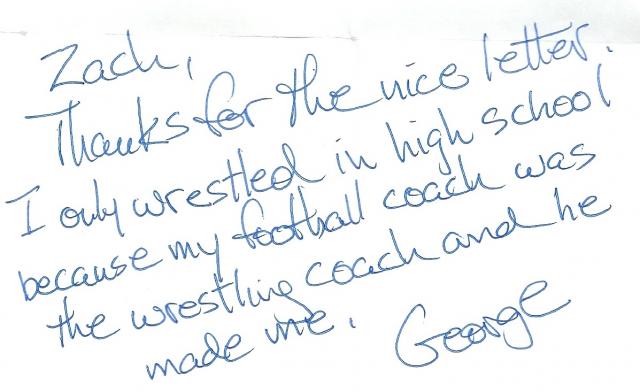 Zach,
Thanks for the nice letter.
I only wrestled in high school
because my football coach was
the wrestling coach and he
made me. George